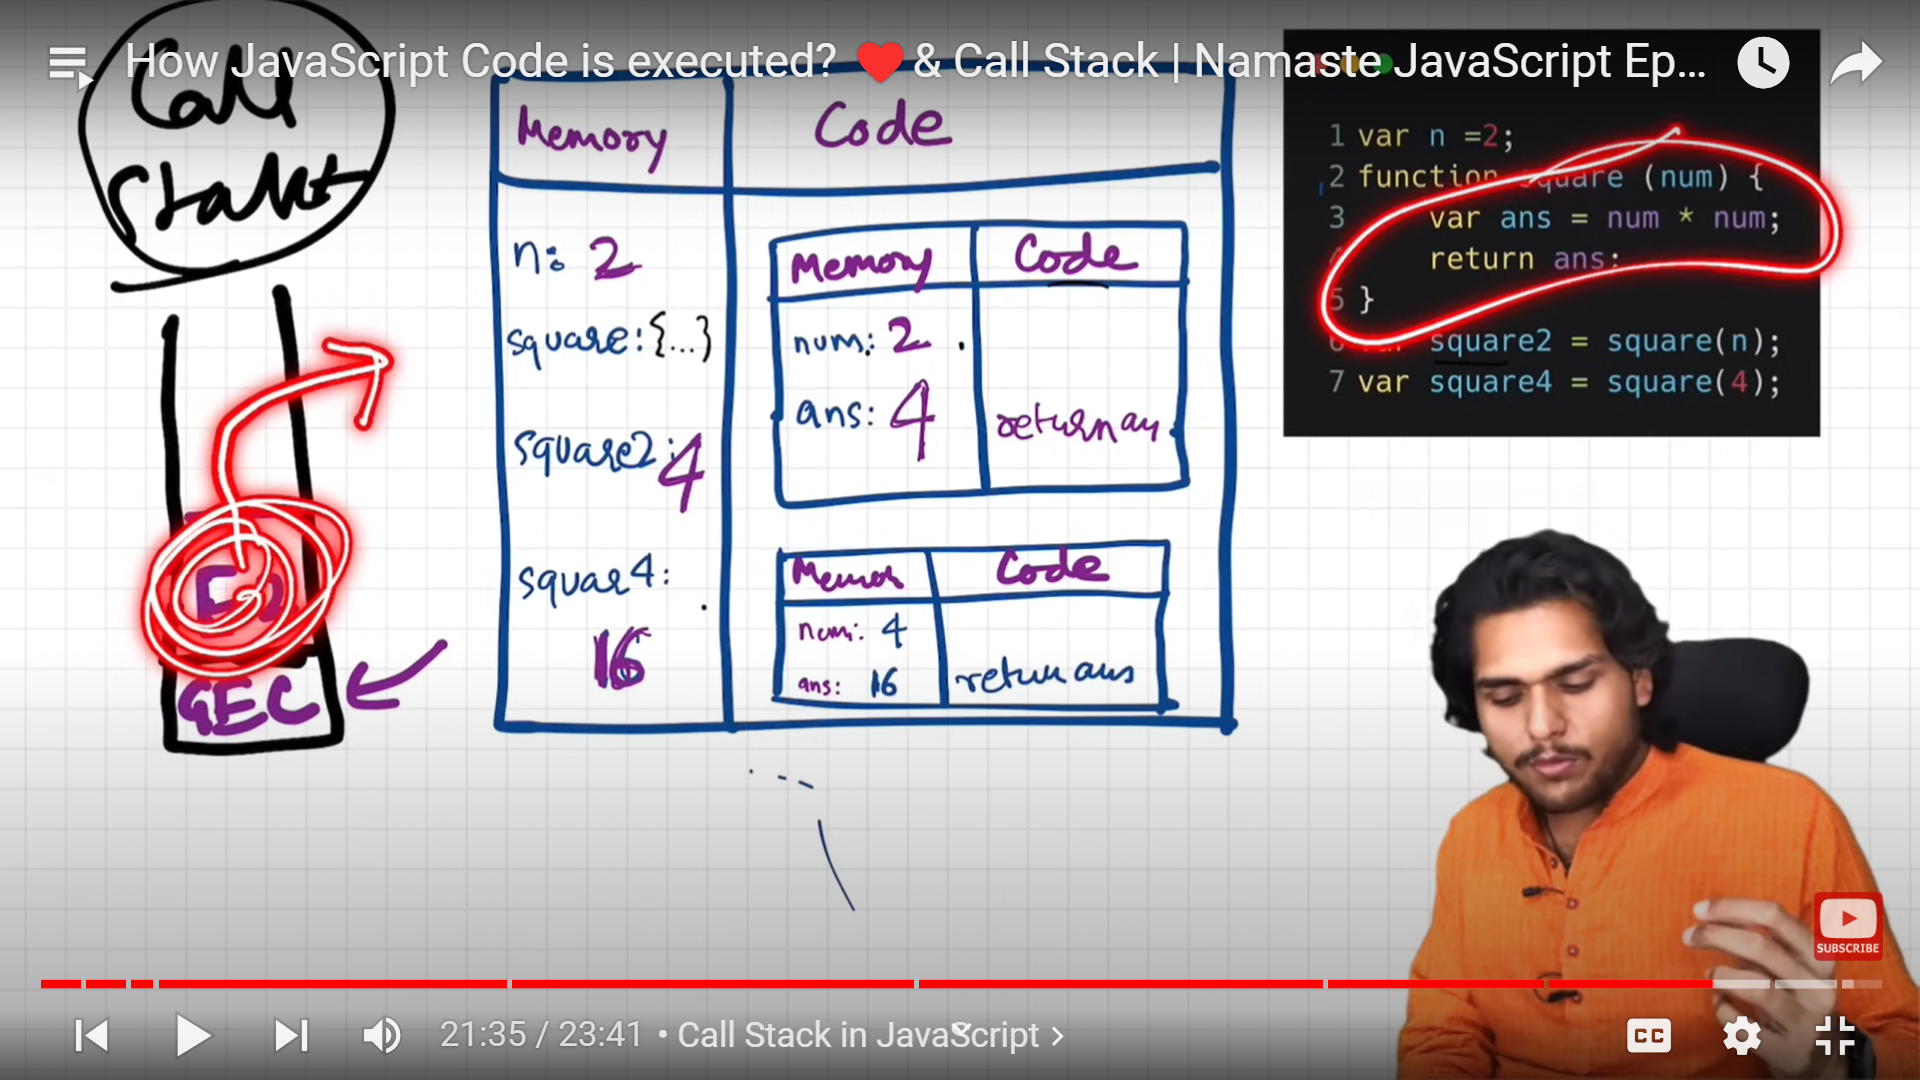 How JavaScript Code is executed? ❤️ & Call Stack | Namaste JavaScript Ep...
Call
Stack
Memory
Code
n: 2
square: {...}
square2: 4
squar4:
16
Memory
Code
num: 2
ans: 4
return an
Memor
Code
num: 4
ans: 16
return ans
GEC
1 var n =2;
2 function square (num) {
3 var ans = num * num;
return ans;
5 }
6 var square2 = square(n);
7 var square4 = square(4);
SUBSCRIBE
21:35 / 23:41 • Call Stack in JavaScript >
CC